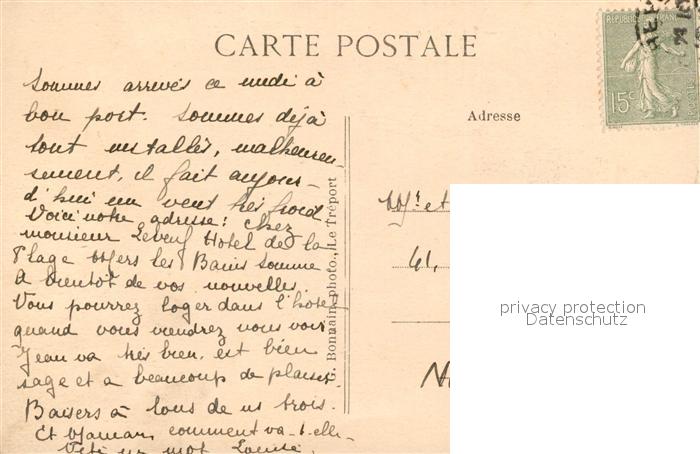 CARTE POSTALE
REPUBLIQUE FRANÇAISE
15c
Adresse
Sommes arrivés ce midi à
bon port. Sommes déjà
tout installés, malheureu,
sement, il fait aujour-
d'hui un vent très froid
Voici notre adresse: Chez
monsieur Lebeuf Hotel de la
Plage Mers les Bains Somme
A bientot de vos nouvelles.
Vous pourrez loger dans l'hotel
quand vous viendrez nous voir
Jean va très bien, est bien
sage et a beaucoup de plaisir.
Baisers à tous de us trois.
Et Maman, comment va-t-elle-
un mot
G. Bonnain, photo., Le Tréport
Mr et
41,
N
privacy protection
Datenschutz